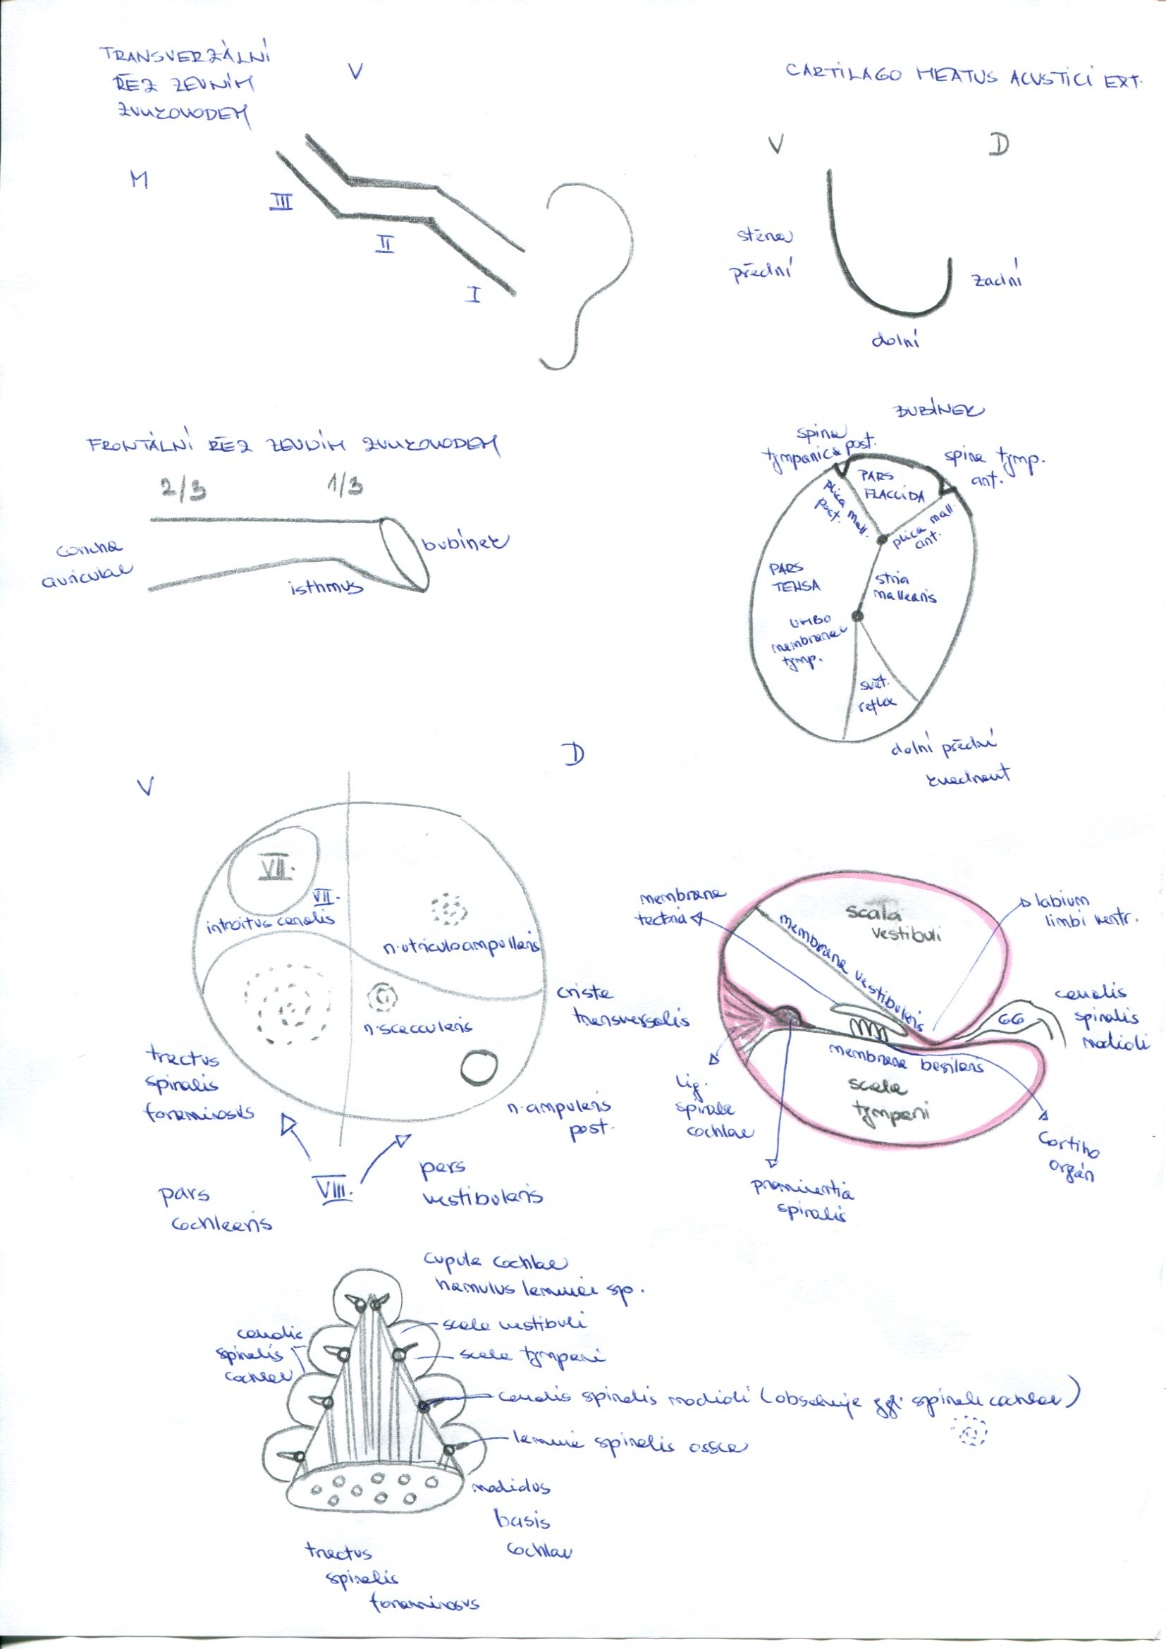 TRANSVERZÁLNÍ
ŘEZ ZEVNÍM
ZVUKOVODEM
V
M
III
II
I
CARTILAGO MEATUS ACUSTICI EXT.
V
D
stěna
přední
zadní
dolní
FRONTÁLNÍ ŘEZ ZEVNÍM ZVUKOVODEM
2/3
1/3
concha
auriculae
isthmus
bubínek
BUBÍNEK
spina
tympanica post.
spina tymp.
ant.
PARS
FLACCIDA
plica mall.
post.
plica mall.
ant.
PARS
TENSA
stria
mallearis
UMBO
membranae
tymp.
svět.
reflex
dolní přední
kvadrant
V
D
VII.
VII.
introitus canalis
n. utriculoampullaris
n. saccularis
crista
transversalis
tractus
spiralis
foraminosus
n. ampularis
post.
VIII.
pars
cochlearis
pars
vestibularis
membrana
tectoria
scala
vestibuli
membrana vestibularis
labium
limbi ventr.
canalis
spiralis
modioli
GG
membrana basilaris
scala
tympani
lig.
spirale
cochlae
prominentia
spiralis
Cortiho
orgán
cupula cochlae
hamulus laminae sp.
canalis
spiralis
cochlae
scala vestibuli
scala tympani
canalis spiralis modioli (obsahuje ggl. spirale cochlae)
lamina spiralis ossea
modiolus
basis
cochlae
tractus
spiralis
foraminosus